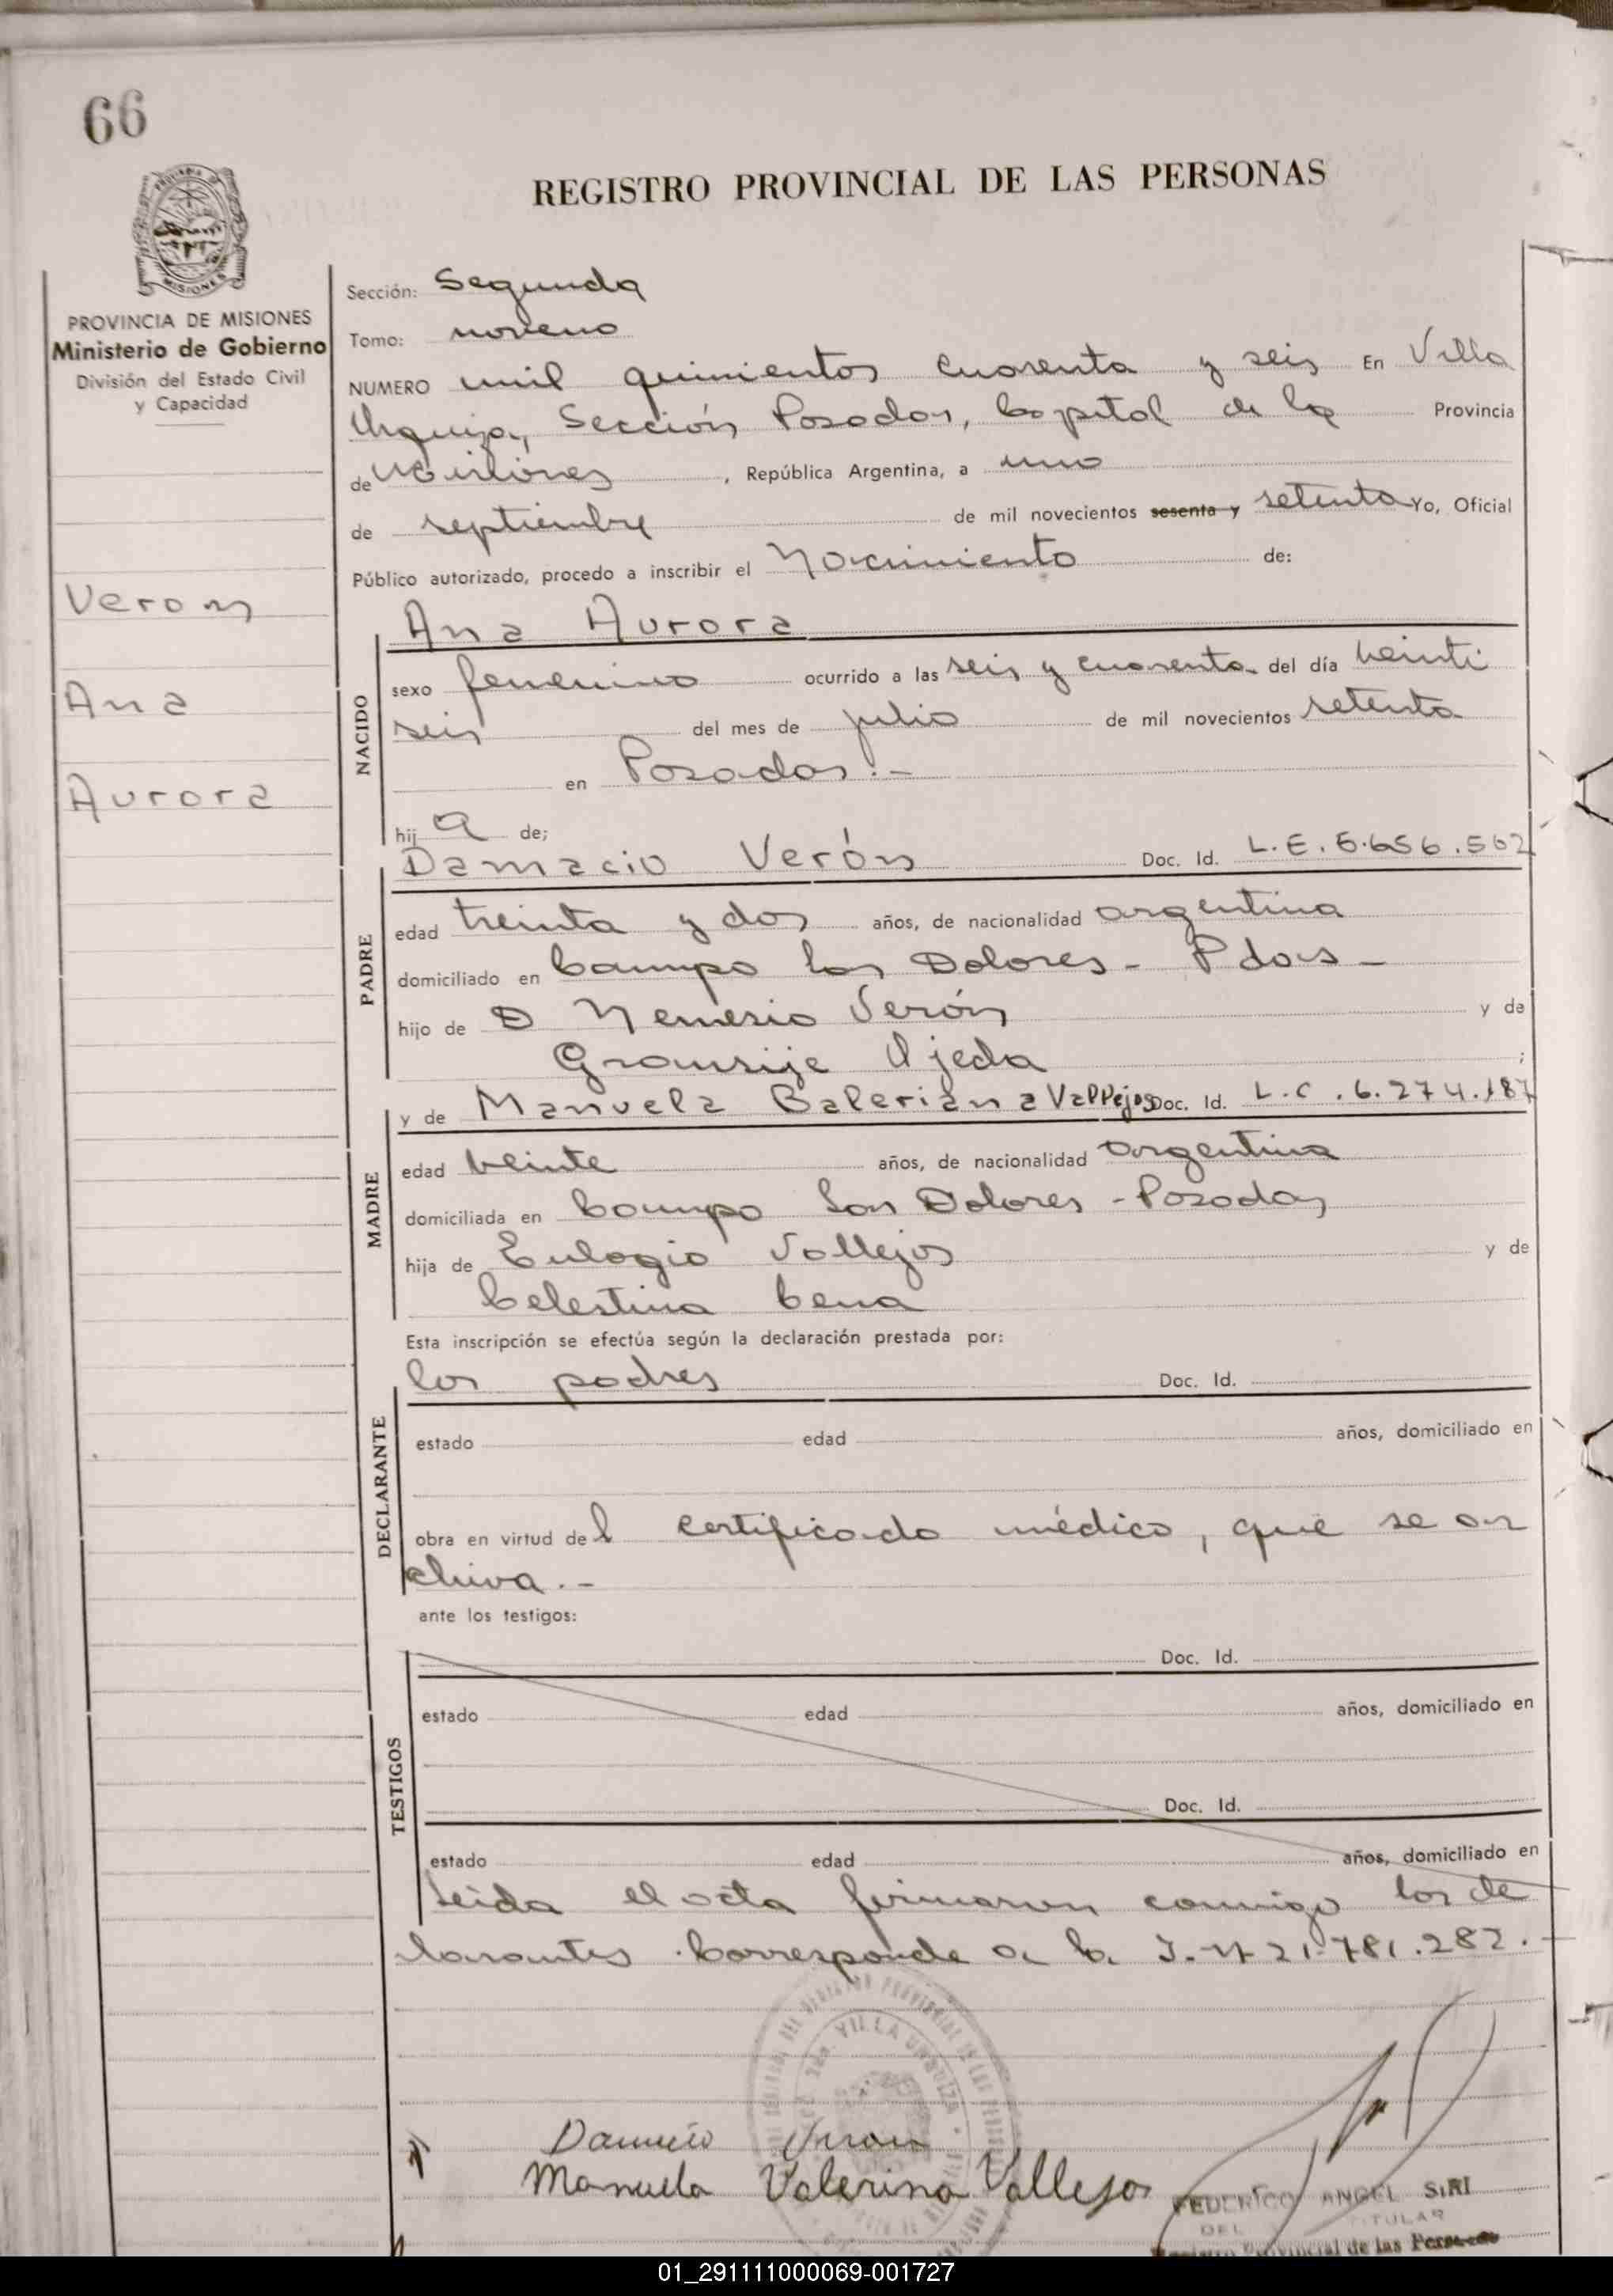 66
REGISTRO PROVINCIAL DE LAS PERSONAS
MISIONES
PROVINCIA DE MISIONES
Ministerio de Gobierno
División del Estado Civil
y Capacidad
Veron
Ana
Aurora
Sección: Segunda
Tomo: noveno
NUMERO mil quinientos cuarenta y seis En Villa
Urquiza, Sección Posadas, Capital de la Provincia
de Misiones, República Argentina, a uno
de septiembre de mil novecientos sesenta y setenta Yo, Oficial
Público autorizado, procedo a inscribir el Nacimiento de:
NACIDO
Ana Aurora
sexo femenino ocurrido a las seis y cuarenta del día veinti
seis del mes de julio de mil novecientos setenta
en Posadas.-
hij a de;
PADRE
Damacio Verón Doc. Id. L.E. 5.656.502
edad treinta y dos años, de nacionalidad argentina
domiciliado en Campo los Dolores - Pdas -
hijo de D Nemesio Verón y de
Ojeda ;
MADRE
y de Manuela Baleriana Vallejos Doc. Id. L.C. 6.274.187
edad veinte años, de nacionalidad argentina
domiciliada en Campo Los Dolores - Posadas
hija de Eulogio Vallejos y de
Celestina Cena
Esta inscripción se efectúa según la declaración prestada por:
DECLARANTE
los padres Doc. Id.
estado edad años, domiciliado en
obra en virtud del certificado médico, que se ar
chiva.-
ante los testigos:
TESTIGOS
Doc. Id.
estado edad años, domiciliado en
Doc. Id.
estado edad años, domiciliado en
Leida el acta firmaron conmigo los de
larantes. Corresponde a la 21.781.282.-
VILLA URQUIZA
Damacio Veron
Manuela Valerina Vallejos
FEDERICO ANGEL SIRI
DEL TITULAR
Registro Provincial de las Personas
01_291111000069-001727